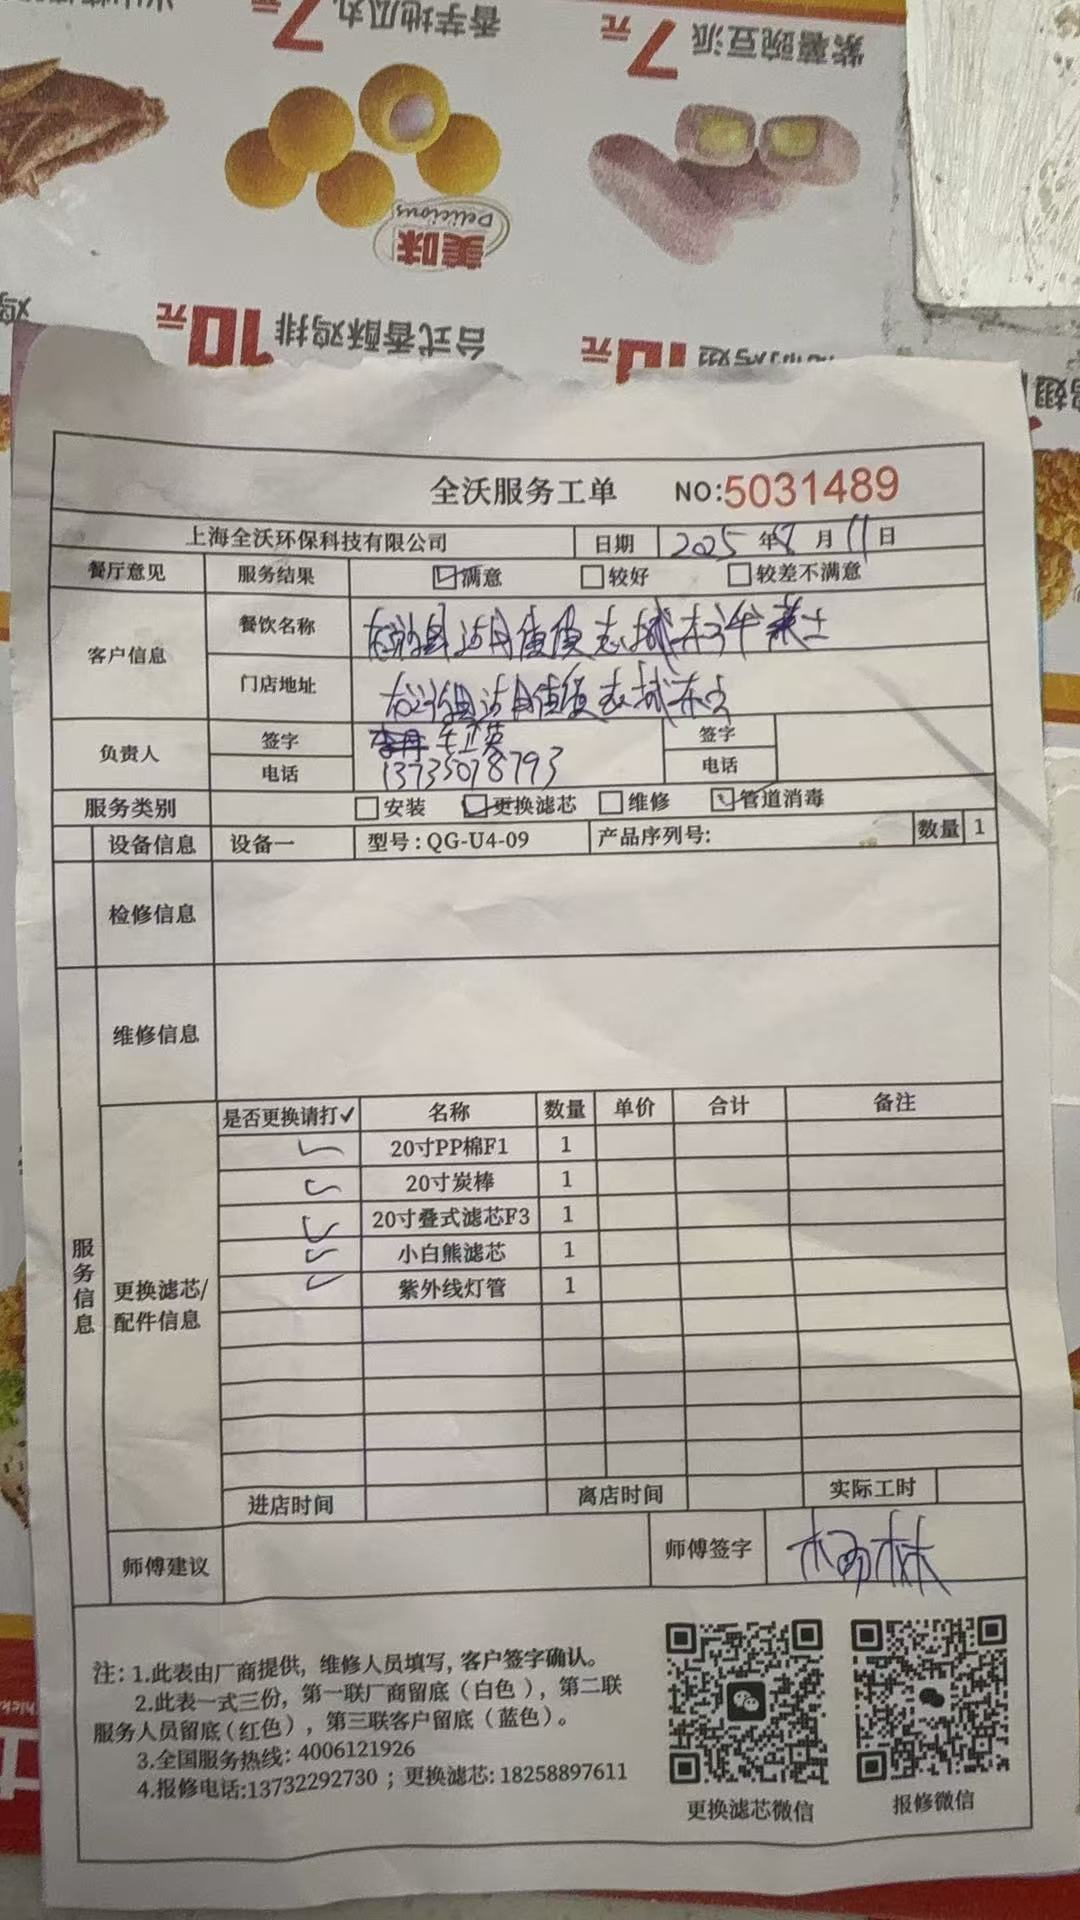 香芋地瓜丸
7元
紫薯豌豆派
7元
美味
Delicious
台式香酥鸡排
10元
全沃服务工单 NO:5031489
上海全沃环保科技有限公司 日期 2025年8月11日
餐厅意见 服务结果 满意 较好 较差不满意
客户信息 餐饮名称
门店地址
负责人 签字 签字
电话 13735078793 电话
服务类别 安装 更换滤芯 维修 管道消毒
设备信息 设备一 型号:QG-U4-09 产品序列号: 数量 1
检修信息
维修信息
服务信息
更换滤芯/配件信息
是否更换请打✓ 名称 数量 单价 合计 备注
✓ 20寸PP棉F1 1
✓ 20寸炭棒 1
✓ 20寸叠式滤芯F3 1
✓ 小白熊滤芯 1
✓ 紫外线灯管 1
进店时间 离店时间 实际工时
师傅建议 师傅签字 杨林
注:1.此表由厂商提供,维修人员填写,客户签字确认。
2.此表一式三份,第一联厂商留底(白色),第二联
服务人员留底(红色),第三联客户留底(蓝色)。
3.全国服务热线:4006121926
4.报修电话:13732292730;更换滤芯:18258897611
更换滤芯微信 报修微信